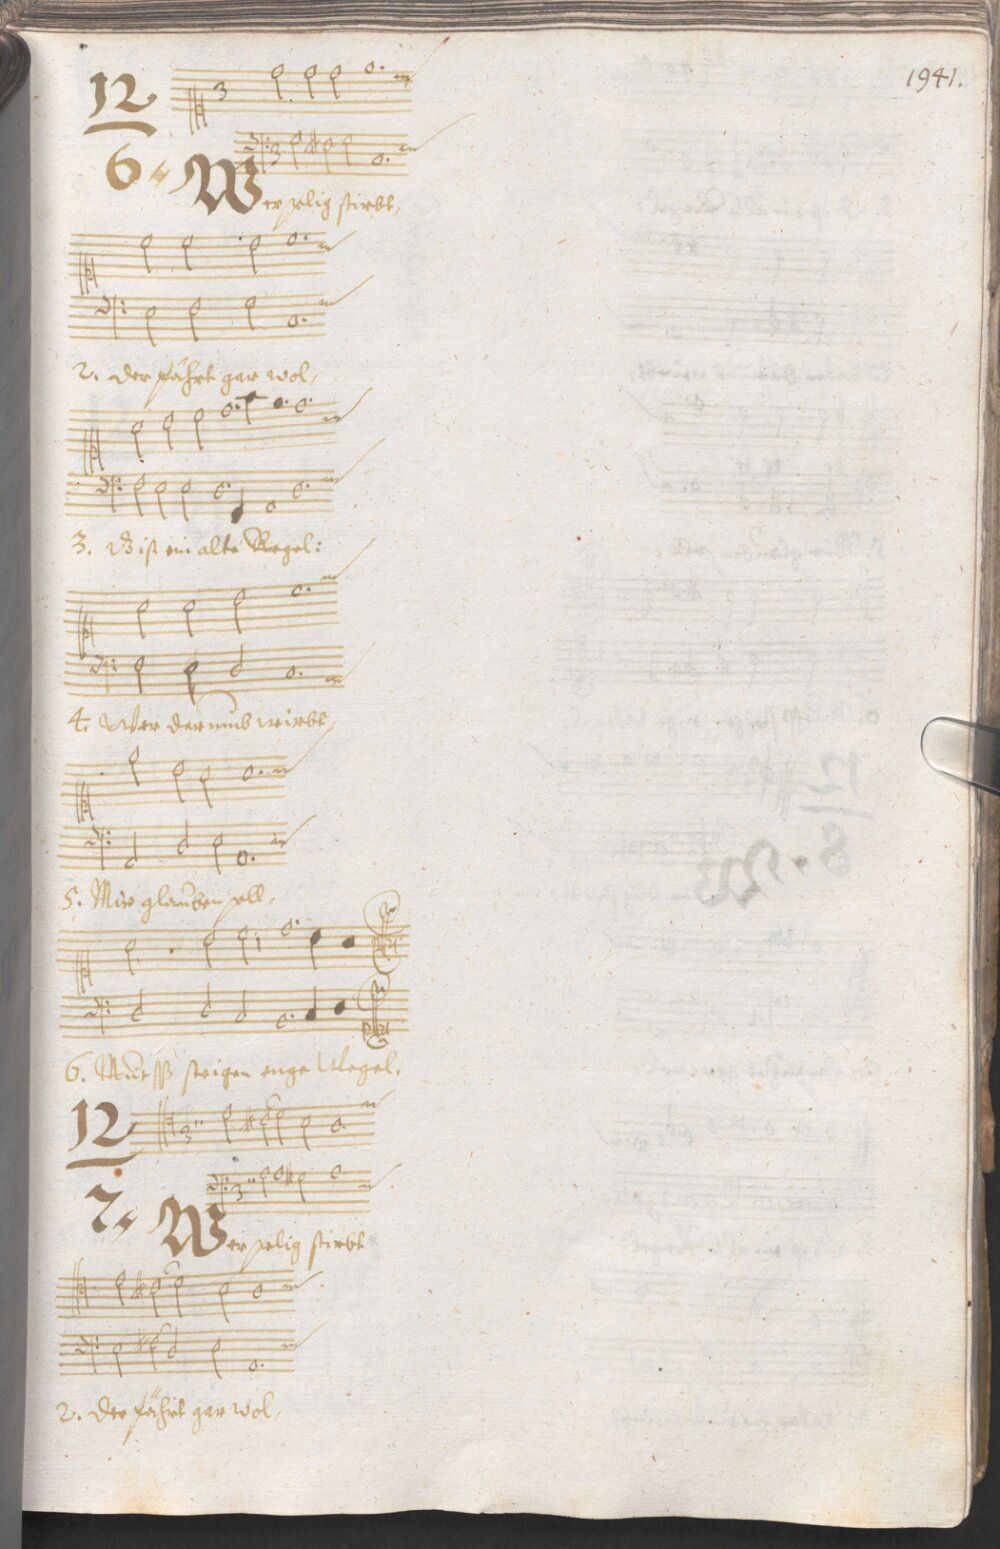 1941.
12
6.
Wer selig stirbt,
2. Der fährt gar wol,
3. Es ist ein alte Regel:
4. Wer darumb wirbt,
5. Mir glauben soll,
6. Muess steigen enge
12
7.
Wer selig stirbt
2. Der fährt gar wol,